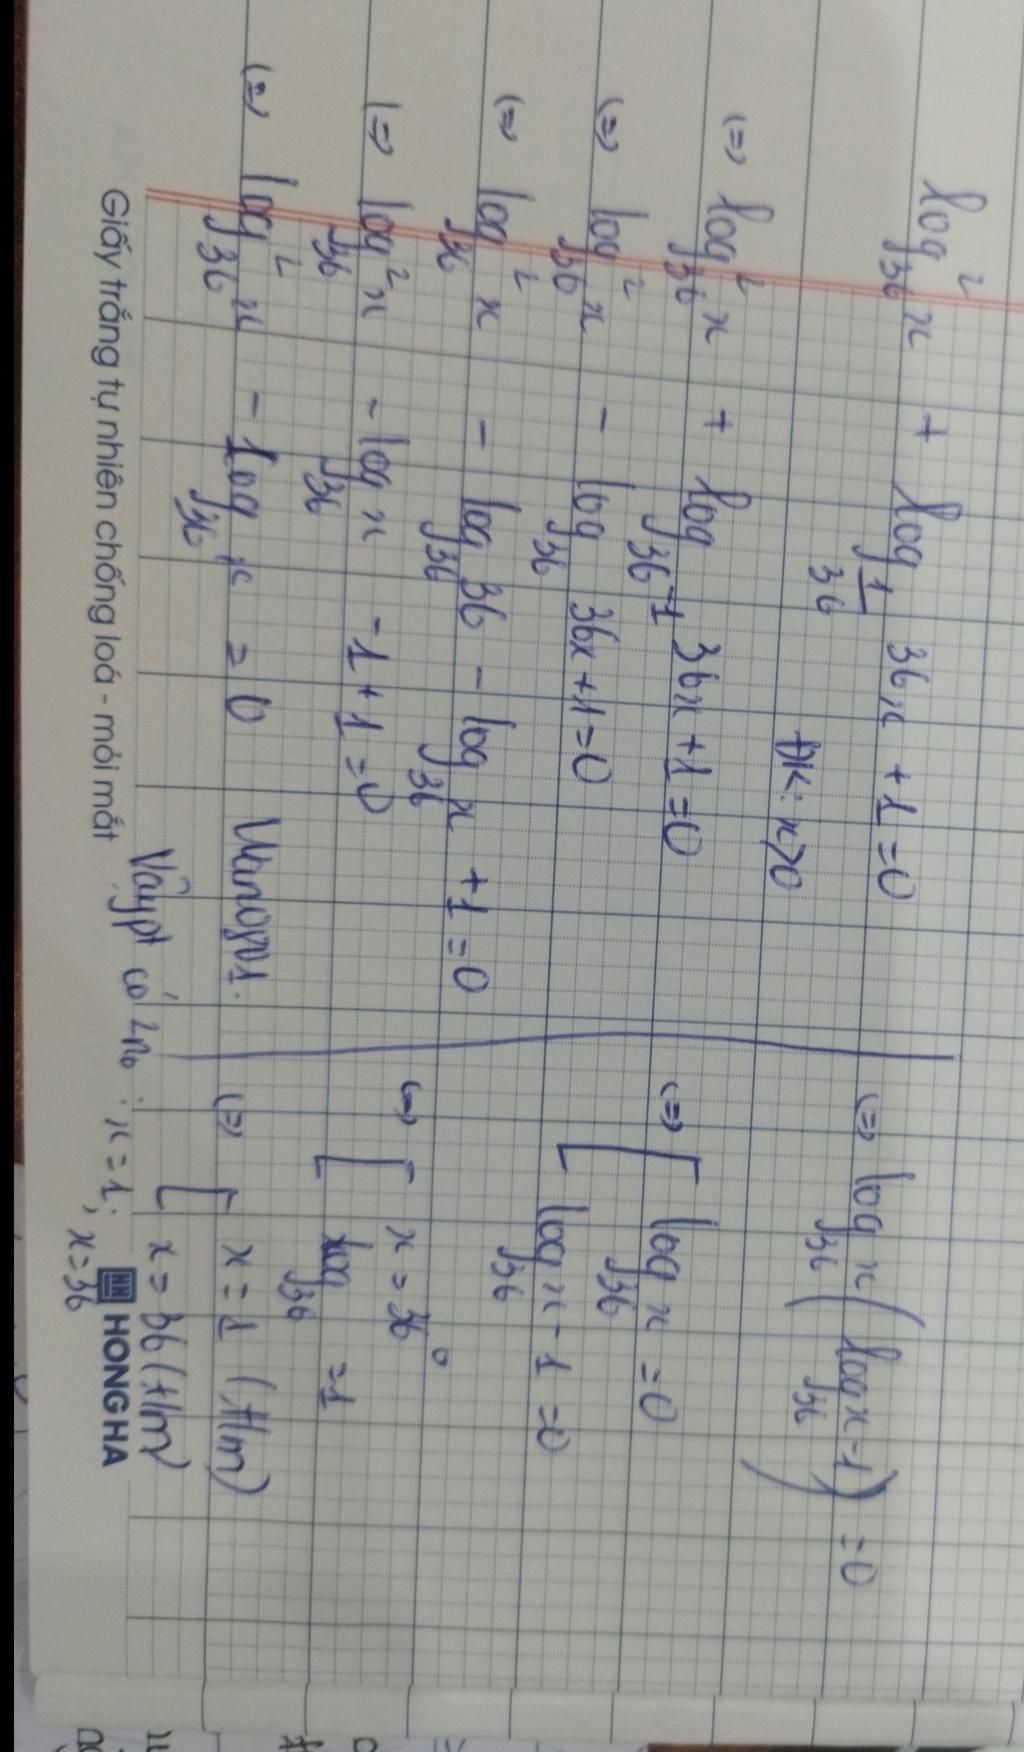 log²₃₆ x + log_(1/36) 36x + 1 = 0
ĐK: x>0
(=) log²₃₆ x + log_(36⁻¹) 36x + 1 = 0
(=) log²₃₆ x - log₃₆ 36x + 1 = 0
(=) log²₃₆ x - log₃₆ 36 - log₃₆ x + 1 = 0
(=) log²₃₆ x - log₃₆ x - 1 + 1 = 0
(=) log²₃₆ x - log₃₆ x = 0
(=) log₃₆ x (log₃₆ x - 1) = 0
(=) [ log₃₆ x = 0
log₃₆ x - 1 = 0
(=) [ x = 36⁰
log₃₆ = 1
(=) [ x = 1 (t/m)
x = 36 (t/m)
Vậy pt có 2 no : x = 1; x = 36
Giấy trắng tự nhiên chống loá - mỏi mắt
HH HONG HA